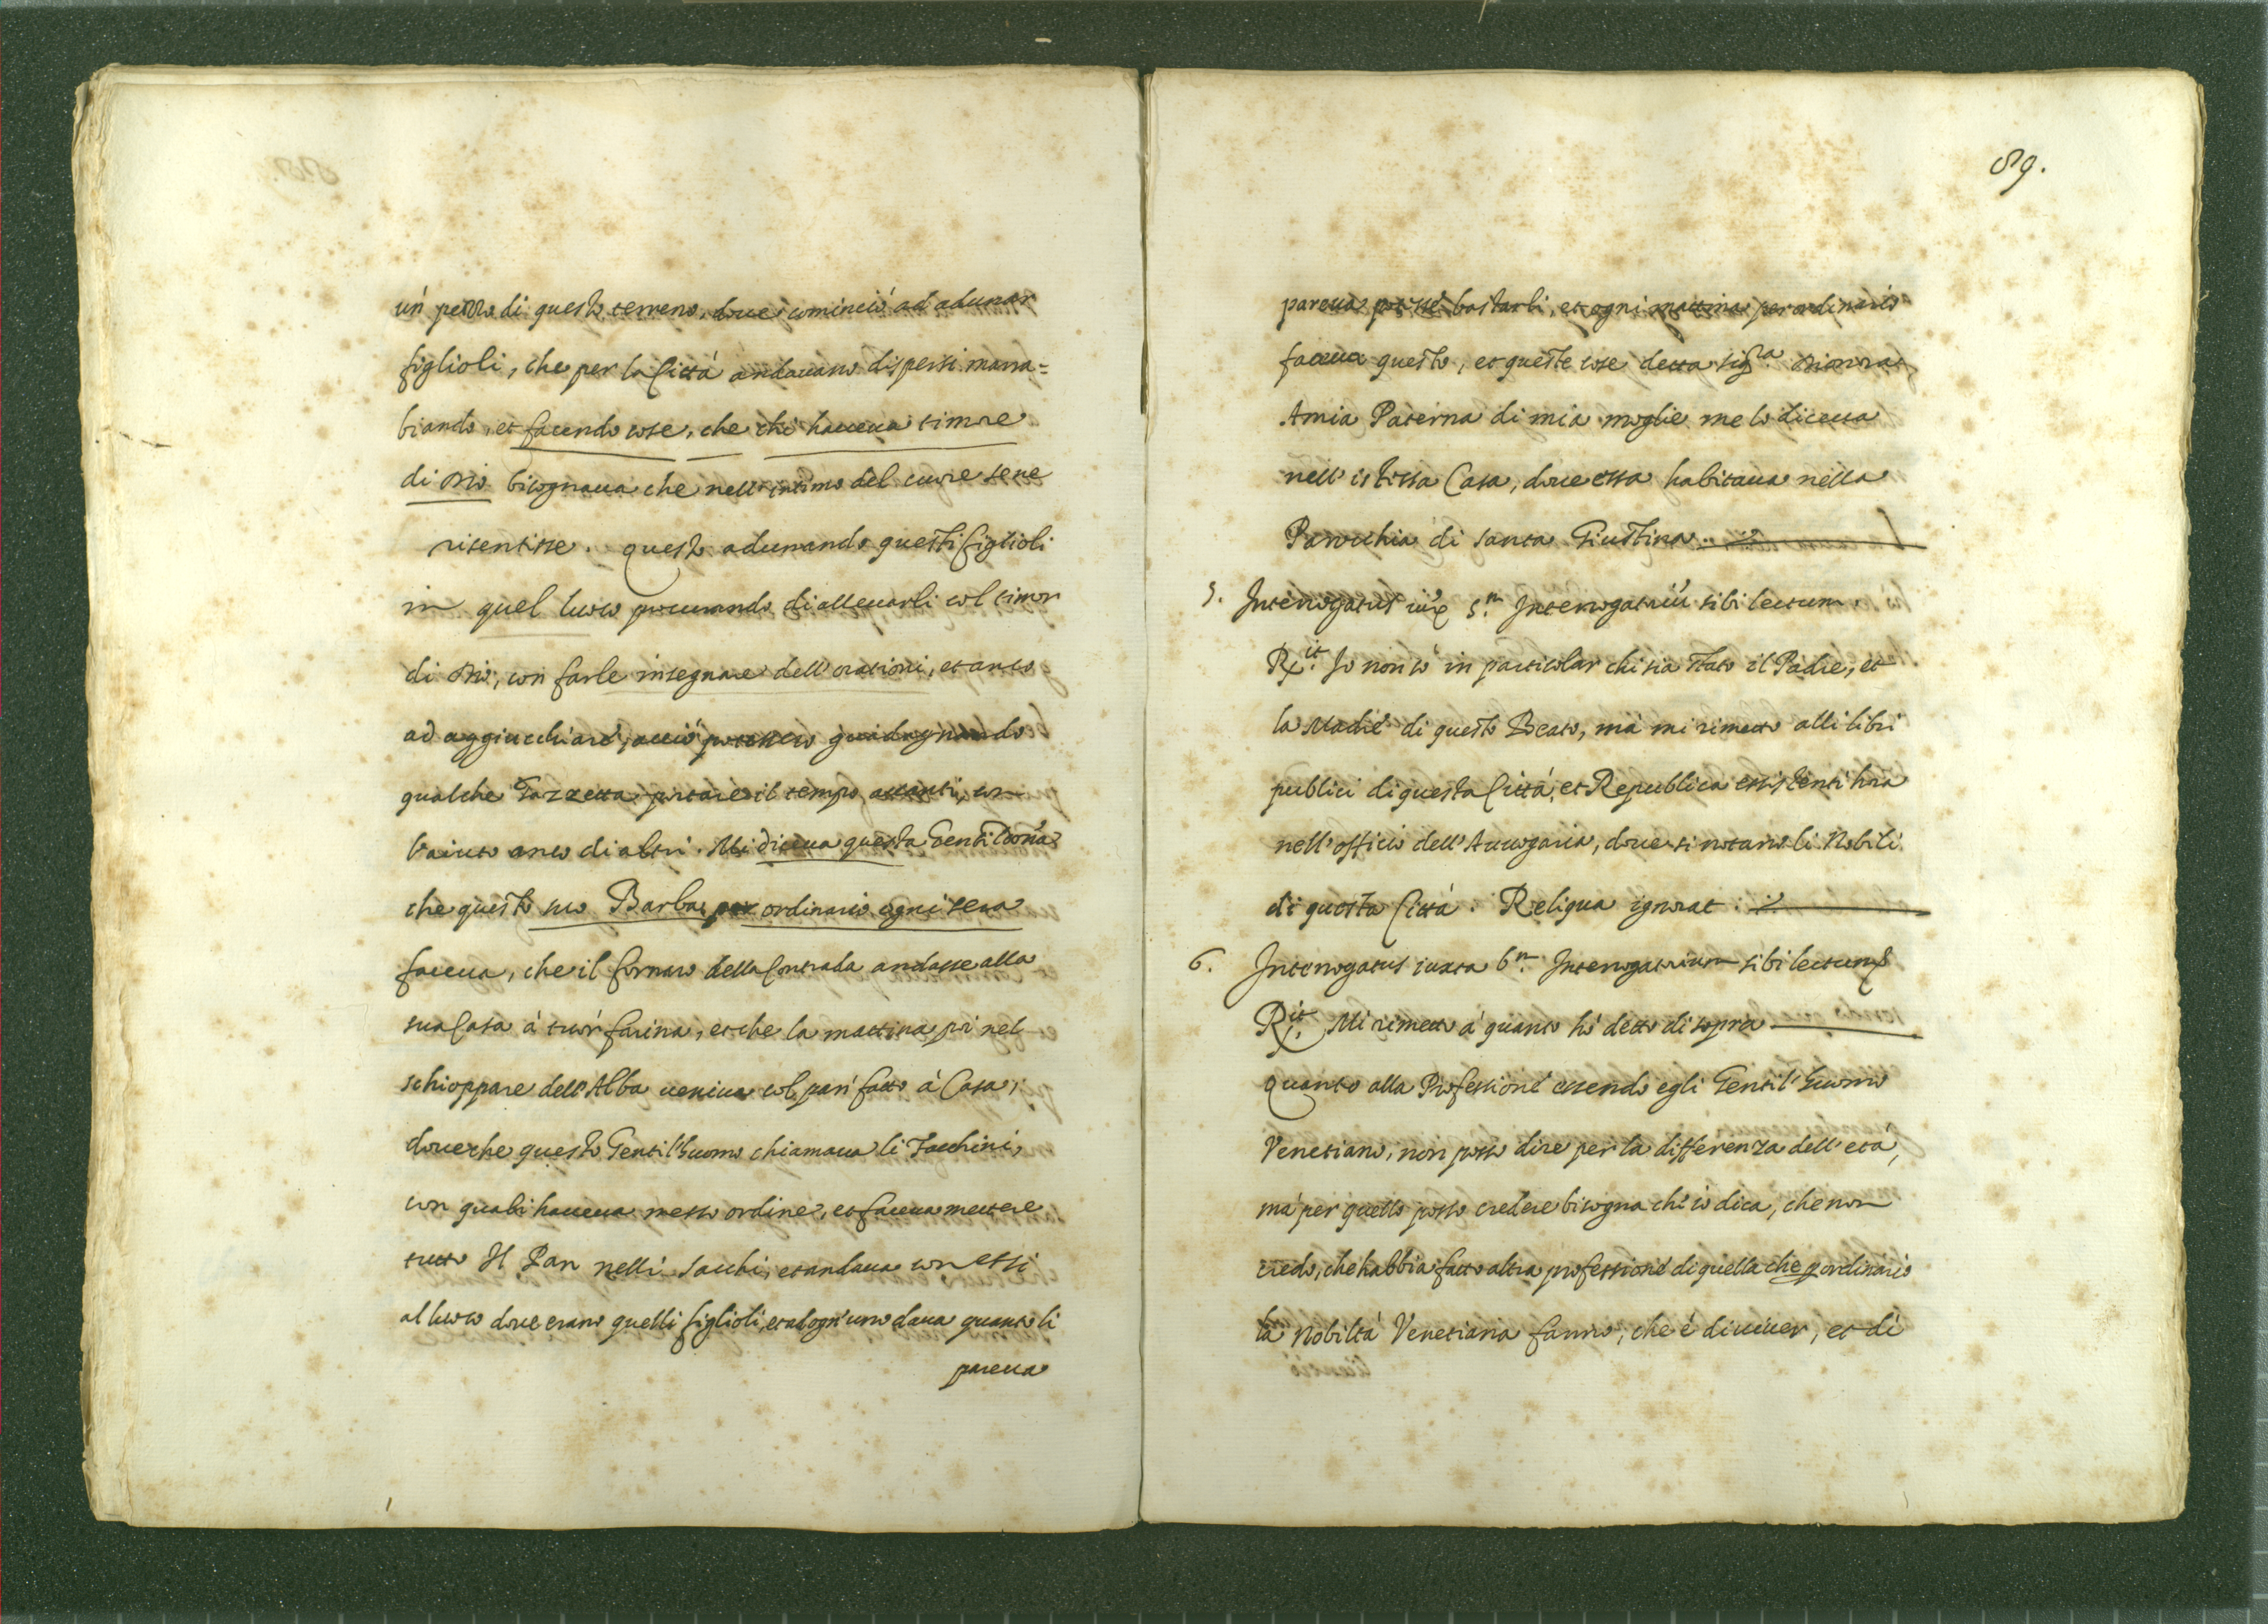 un pezzo di questo terreno, doue cominciò ad adunar
figlioli, che per la Città andauano dispersi marra=
biando, et facendo cose, che chi haueua timore
di Dio bisognaua che nell'intimo del cuore sene
risentisse. questo adunando questi figlioli
in quel luoco procurando di alleuarli col timor
di Dio, con farle insegnare dell'orationi, et anco
ad aggiucchiare, acciò potessero guidagnando
qualche Gazzetta portare il tempo auanti, con
l'aiuto anco di altri. Mi diceua questa Gentildona
che questo suo Barba per ordinario ogni sera
faceua, che il fornaro della Contrada andasse alla
sua Casa à tuor farina, et che la mattina poi nel
schioppare dell'Alba ueniua col pan fatto à Casa,
doue che questo Gentil'huomo chiamaua li Facchini,
con quali haueua messo ordine, et faceua mettere
tutto Il Pan nelli sacchi, et andaua con essi
al luoco doue erano quelli figlioli, et ad ogn'uno daua quanto li
pareua
89.
pareua potesse bastarli, et ogni mattina per ordinario
faceua questo, et queste cose detta sig.ra Dionora
Amia Paterna di mia moglie me lo diceua
nell'istessa Casa, doue essa habitaua nella
Parochia di santa Giustina.
5. Interrogatus iux 5.m Interrogatoriu sibi lectum.
R.it Io non so in particolar chi sia stato il Padre, et
la Madre di questo Beato, mà mi rimetto alli libri
publici di questa Città, et Republica essistenti hora
nell'officio dell'Auuogaria, doue si notano li Nobili
di questa Città. Reliqua ignorat.
6. Interrogatus iuxta 6.m Interrogatorium sibi lectum
R.it Mi rimetto à quanto hò detto di sopra
quanto alla Professione essendo egli Gentil'huomo
Venetiano, non posso dire per la differenza dell'età,
mà per quello posso credere bisogna ch'io dica, che non
credo, che habbia fatto altra professione di quella che p ordinario
la Nobiltà Venetiana fanno, che è di uiuer, et di